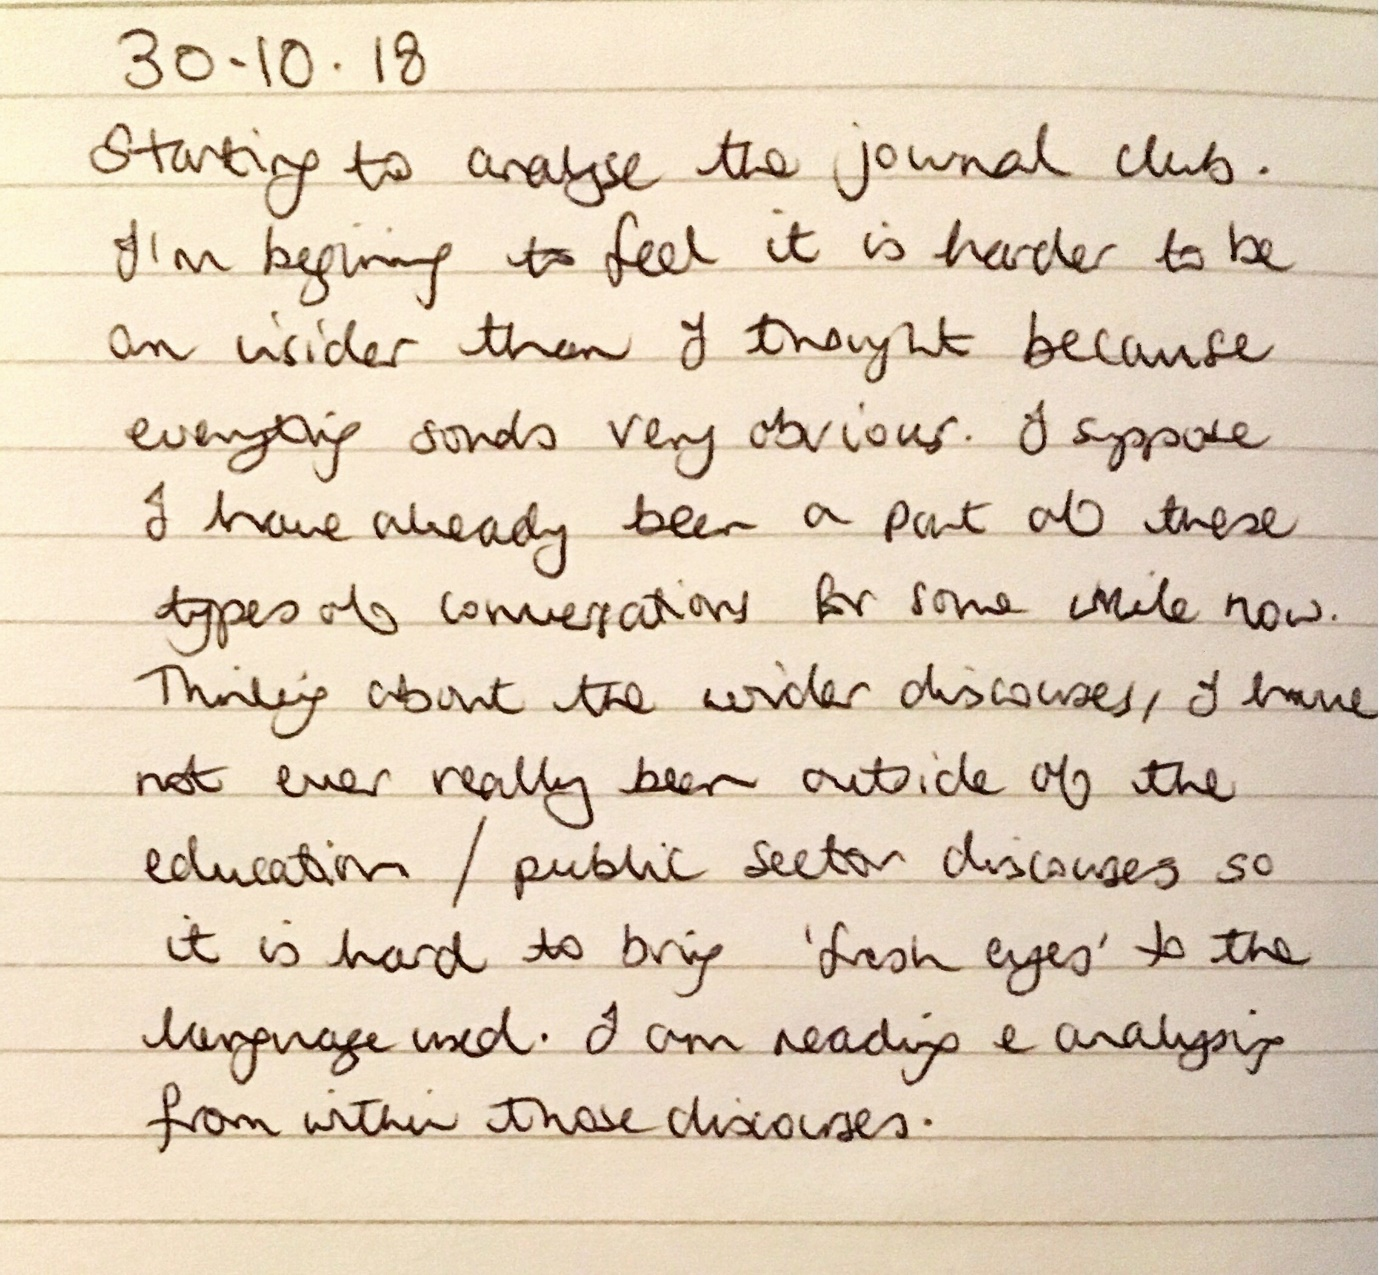 30.10.18
Starting to analyse the journal club.
I'm begining to feel it is harder to be
an insider than I thought because
everything sounds very obvious. I suppose
I have already been a part of these
types of conversations for some while now.
Thinking about the wider discourses, I have
not ever really been outside of the
education / public sector discourses so
it is hard to bring 'fresh eyes' to the
language used. I am reading & analysing
from within those discourses.